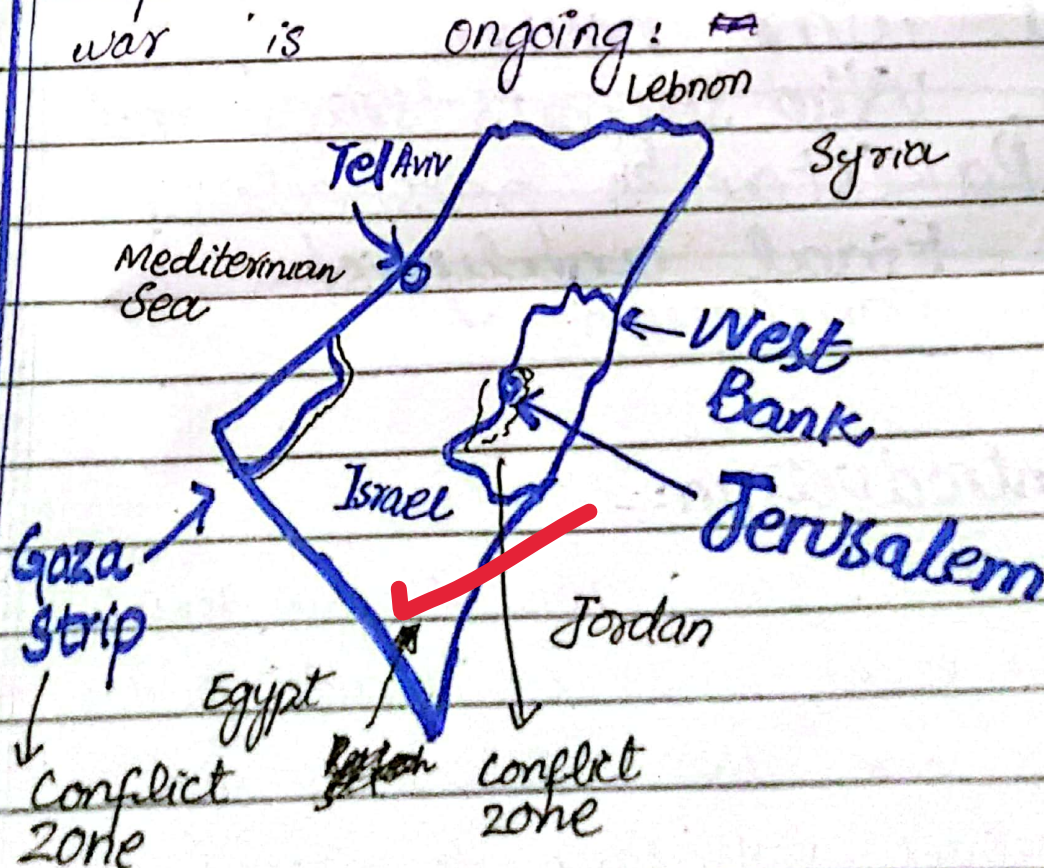 war is ongoing:
Lebnon
Syria
Tel Aviv
Mediterinian
Sea
West
Bank
Israel
Jerusalem
Gaza
Strip
Jordan
Egypt
Conflict
Zone
Conflict
Zone